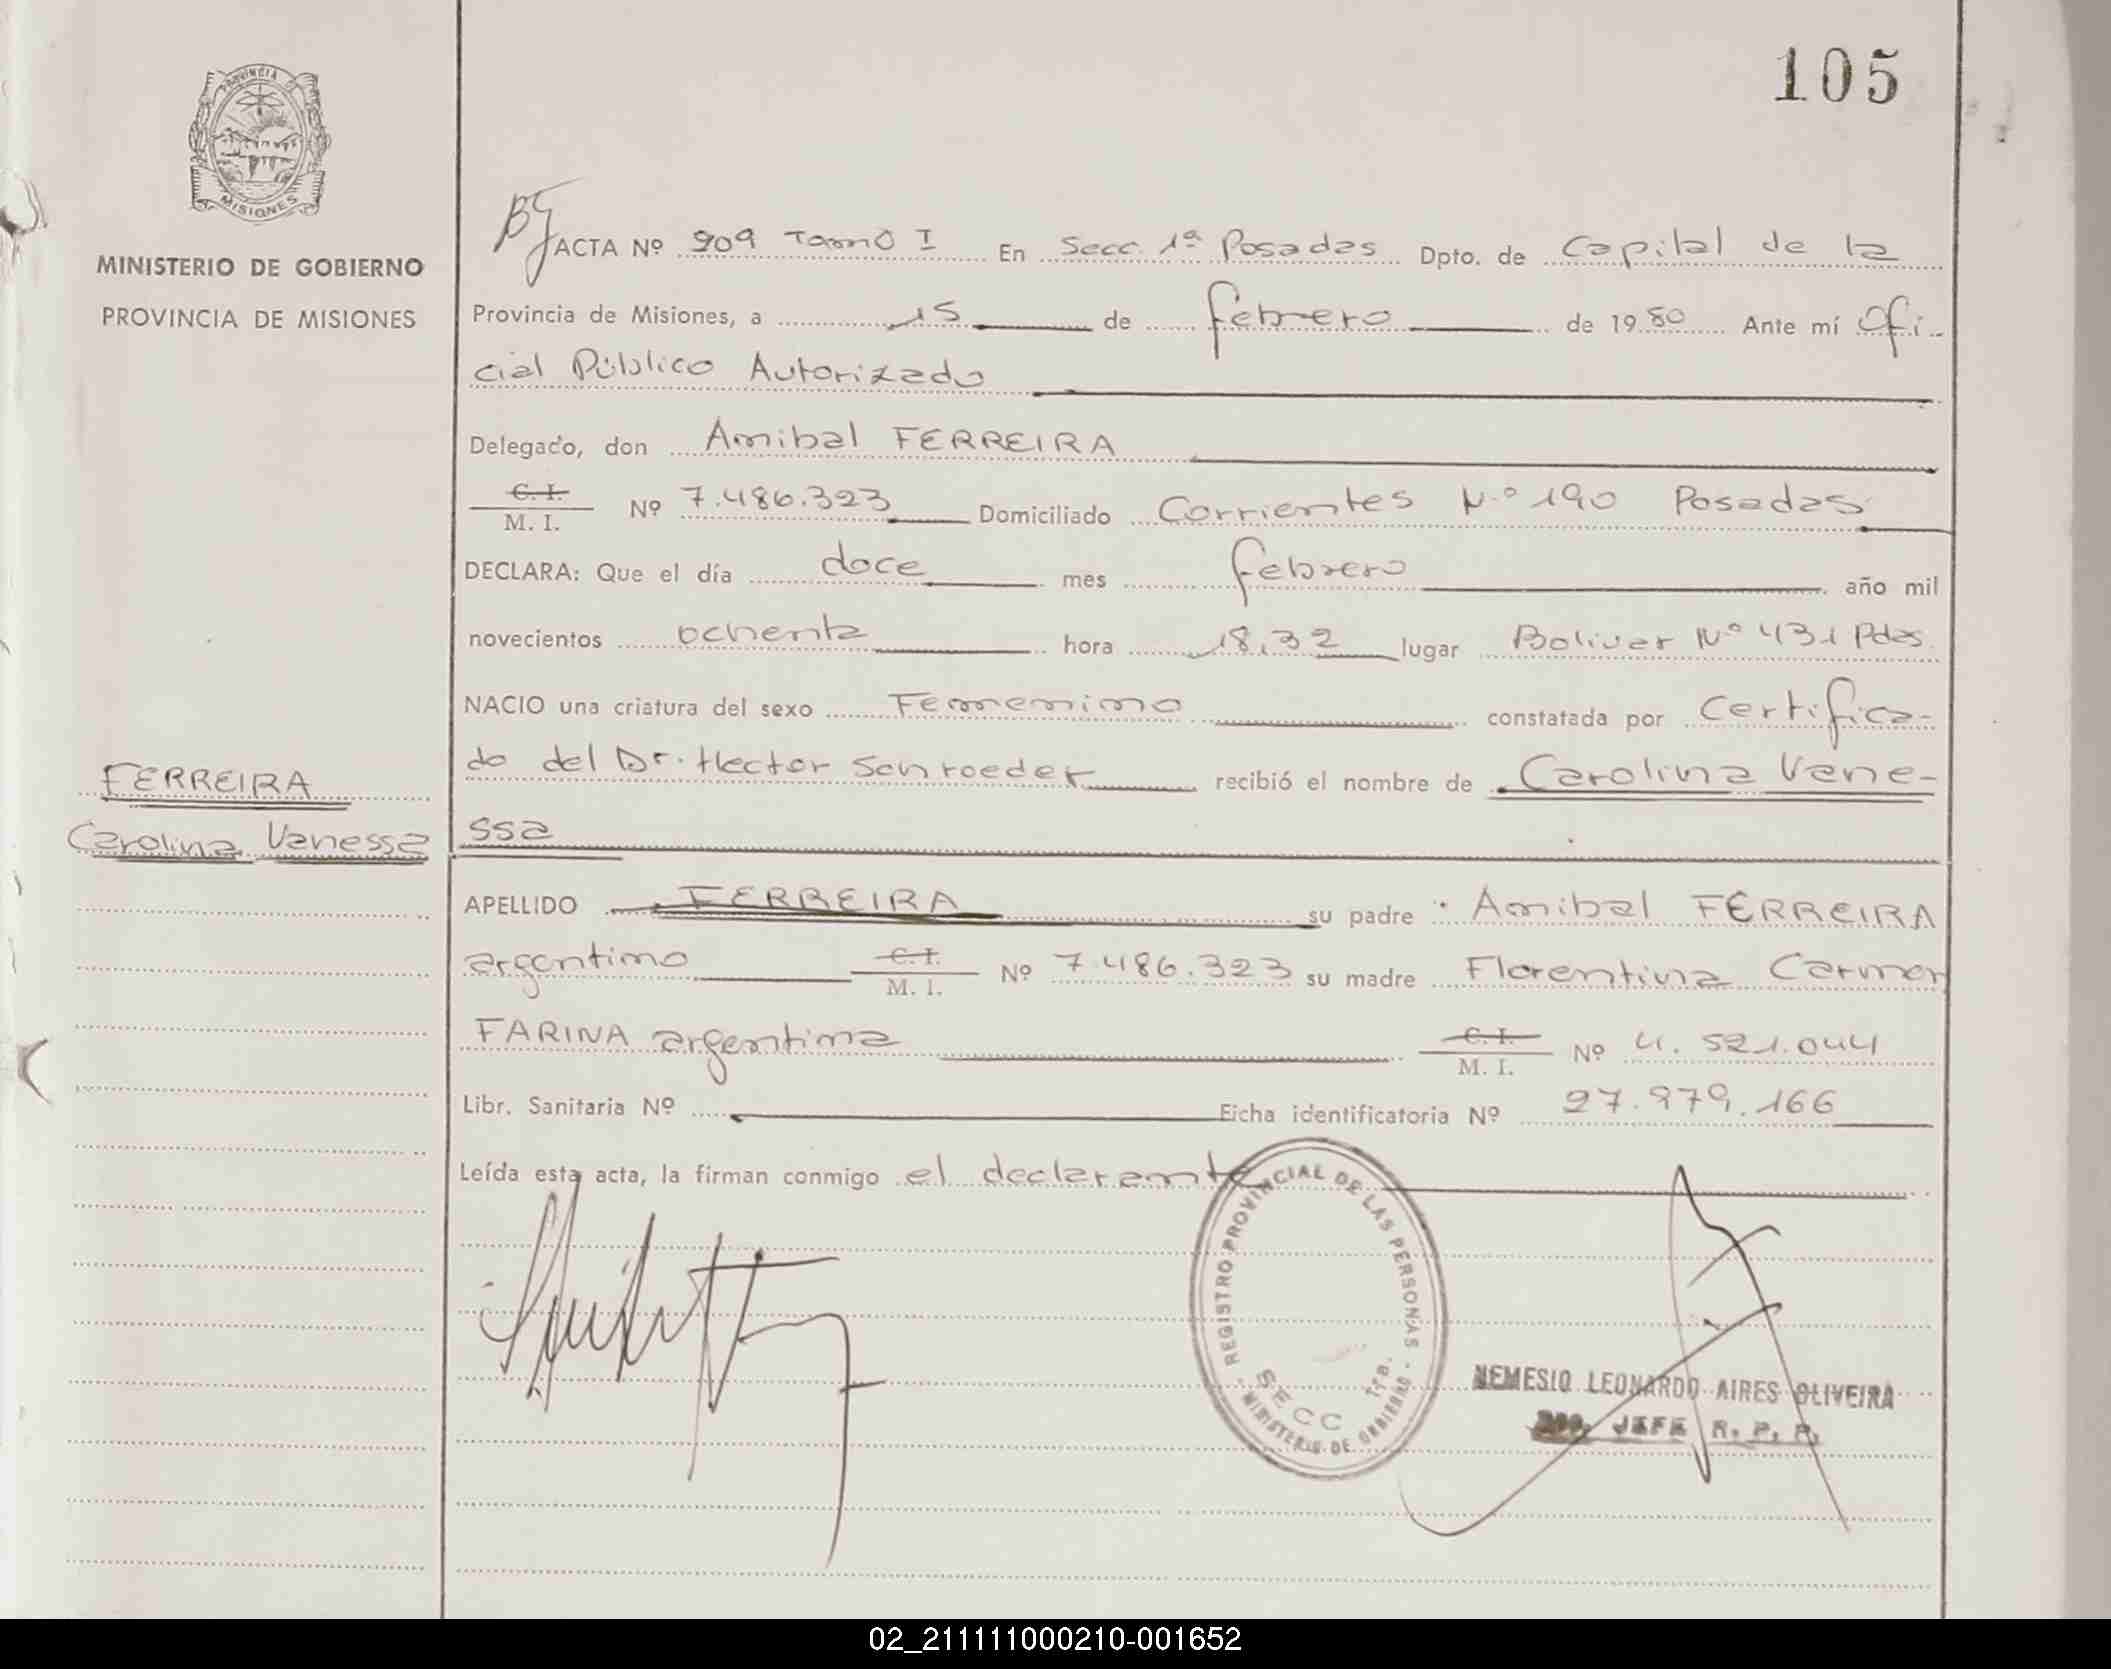 105
PROVINCIA
MISIONES
MINISTERIO DE GOBIERNO
PROVINCIA DE MISIONES
ACTA Nº 909 Tomo I En Secc. 1ª Posadas Dpto. de Capital de la
Provincia de Misiones, a 15 de febrero de 1980 Ante mí Ofi-
cial Público Autorizado
Delegado, don Anibal FERREIRA
C. I.
M. I. Nº 7.486.323 Domiciliado Corrientes Nº 190 Posadas
DECLARA: Que el día doce mes febrero año mil
novecientos ochenta hora 18,32 lugar Bolivar Nº 431 Pdas.
NACIO una criatura del sexo Femenino constatada por Certifica-
do del Dr. Hector Schroeder recibió el nombre de Carolina Vane-
ssa
FERREIRA
Carolina Vanessa
APELLIDO FERREIRA su padre Anibal FERREIRA
argentino C. I.
M. I. Nº 7.486.323 su madre Florentina Carmen
FARINA argentina C. I.
M. I. Nº 4.521.044
Libr. Sanitaria Nº Ficha identificatoria Nº 27.979.166
Leída esta acta, la firman conmigo el declarante
REGISTRO PROVINCIAL DE LAS PERSONAS
SECC 1ra.
MINISTERIO DE GOBIERNO
NEMESIO LEONARDO AIRES OLIVEIRA
JEFE R. P. P.
02_211111000210-001652